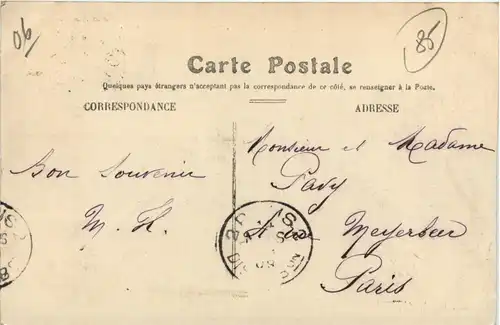 06
85
Carte Postale
Quelques pays étrangers n'acceptant pas la correspondance de ce côté, se renseigner à la Poste.
CORRESPONDANCE
ADRESSE
Bon Souvenir
M. H.
Monsieur et Madame
Pavy
Meyerbeer
Paris